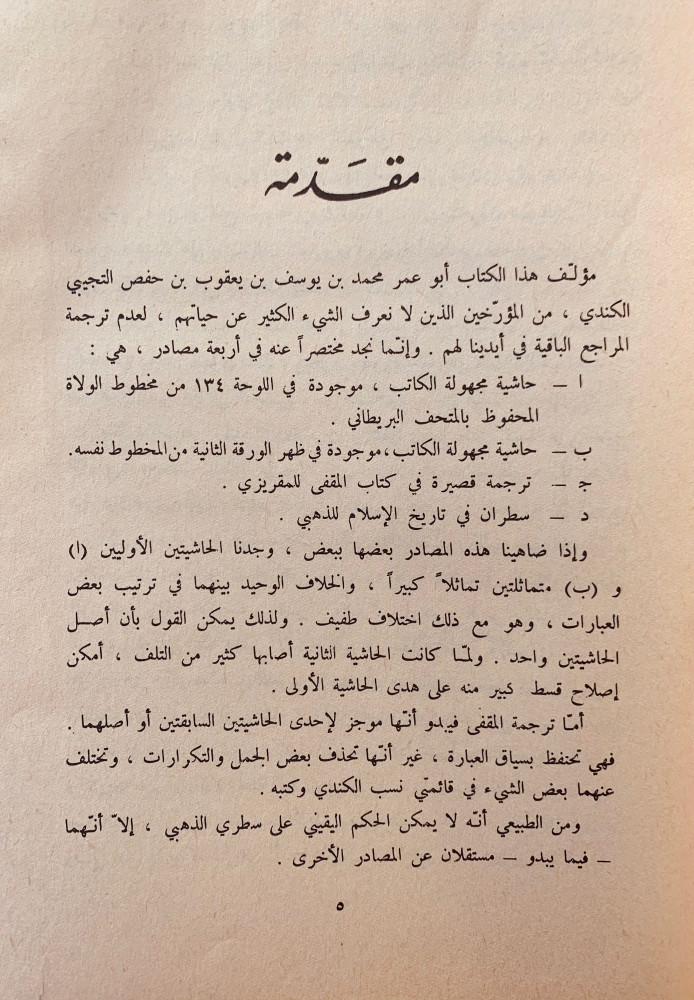 مقَدّمة
مؤلّف هذا الكتاب أبو عمر محمد بن يوسف بن يعقوب بن حفص التجيبي
الكندي ، من المؤرّخين الذين لا نعرف الشيء الكثير عن حياتهم ، لعدم ترجمة
المراجع الباقية في أيدينا لهم . وإنّما نجد مختصراً عنه في أربعة مصادر ، هي :
ا – حاشية مجهولة الكاتب ، موجودة في اللوحة ١٣٤ من مخطوط الولاة
المحفوظ بالمتحف البريطاني .
ب – حاشية مجهولة الكاتب،موجودة في ظهر الورقة الثانية من المخطوط نفسه.
ج – ترجمة قصيرة في كتاب المقفى للمقريزي .
د – سطران في تاريخ الإسلام للذهبي .
وإذا ضاهينا هذه المصادر بعضها ببعض ، وجدنا الحاشيتين الأوليين (ا)
و (ب) متماثلتين تماثلاً كبيراً ، والخلاف الوحيد بينهما في ترتيب بعض
العبارات ، وهو مع ذلك اختلاف طفيف . ولذلك يمكن القول بأن أصل
الحاشيتين واحد . ولمّا كانت الحاشية الثانية أصابها كثير من التلف ، أمكن
إصلاح قسط كبير منه على هدى الحاشية الأولى .
أمّا ترجمة المقفى فيبدو أنّها موجز لإحدى الحاشيتين السابقتين أو أصلهما .
فهي تحتفظ بسياق العبارة ، غير أنّها تحذف بعض الجمل والتكرارات ، وتختلف
عنهما بعض الشيء في قائمتي نسب الكندي وكتبه .
ومن الطبيعي أنّه لا يمكن الحكم اليقيني على سطري الذهبي ، إلاّ أنّهما
– فيما يبدو – مستقلان عن المصادر الأخرى .
٥